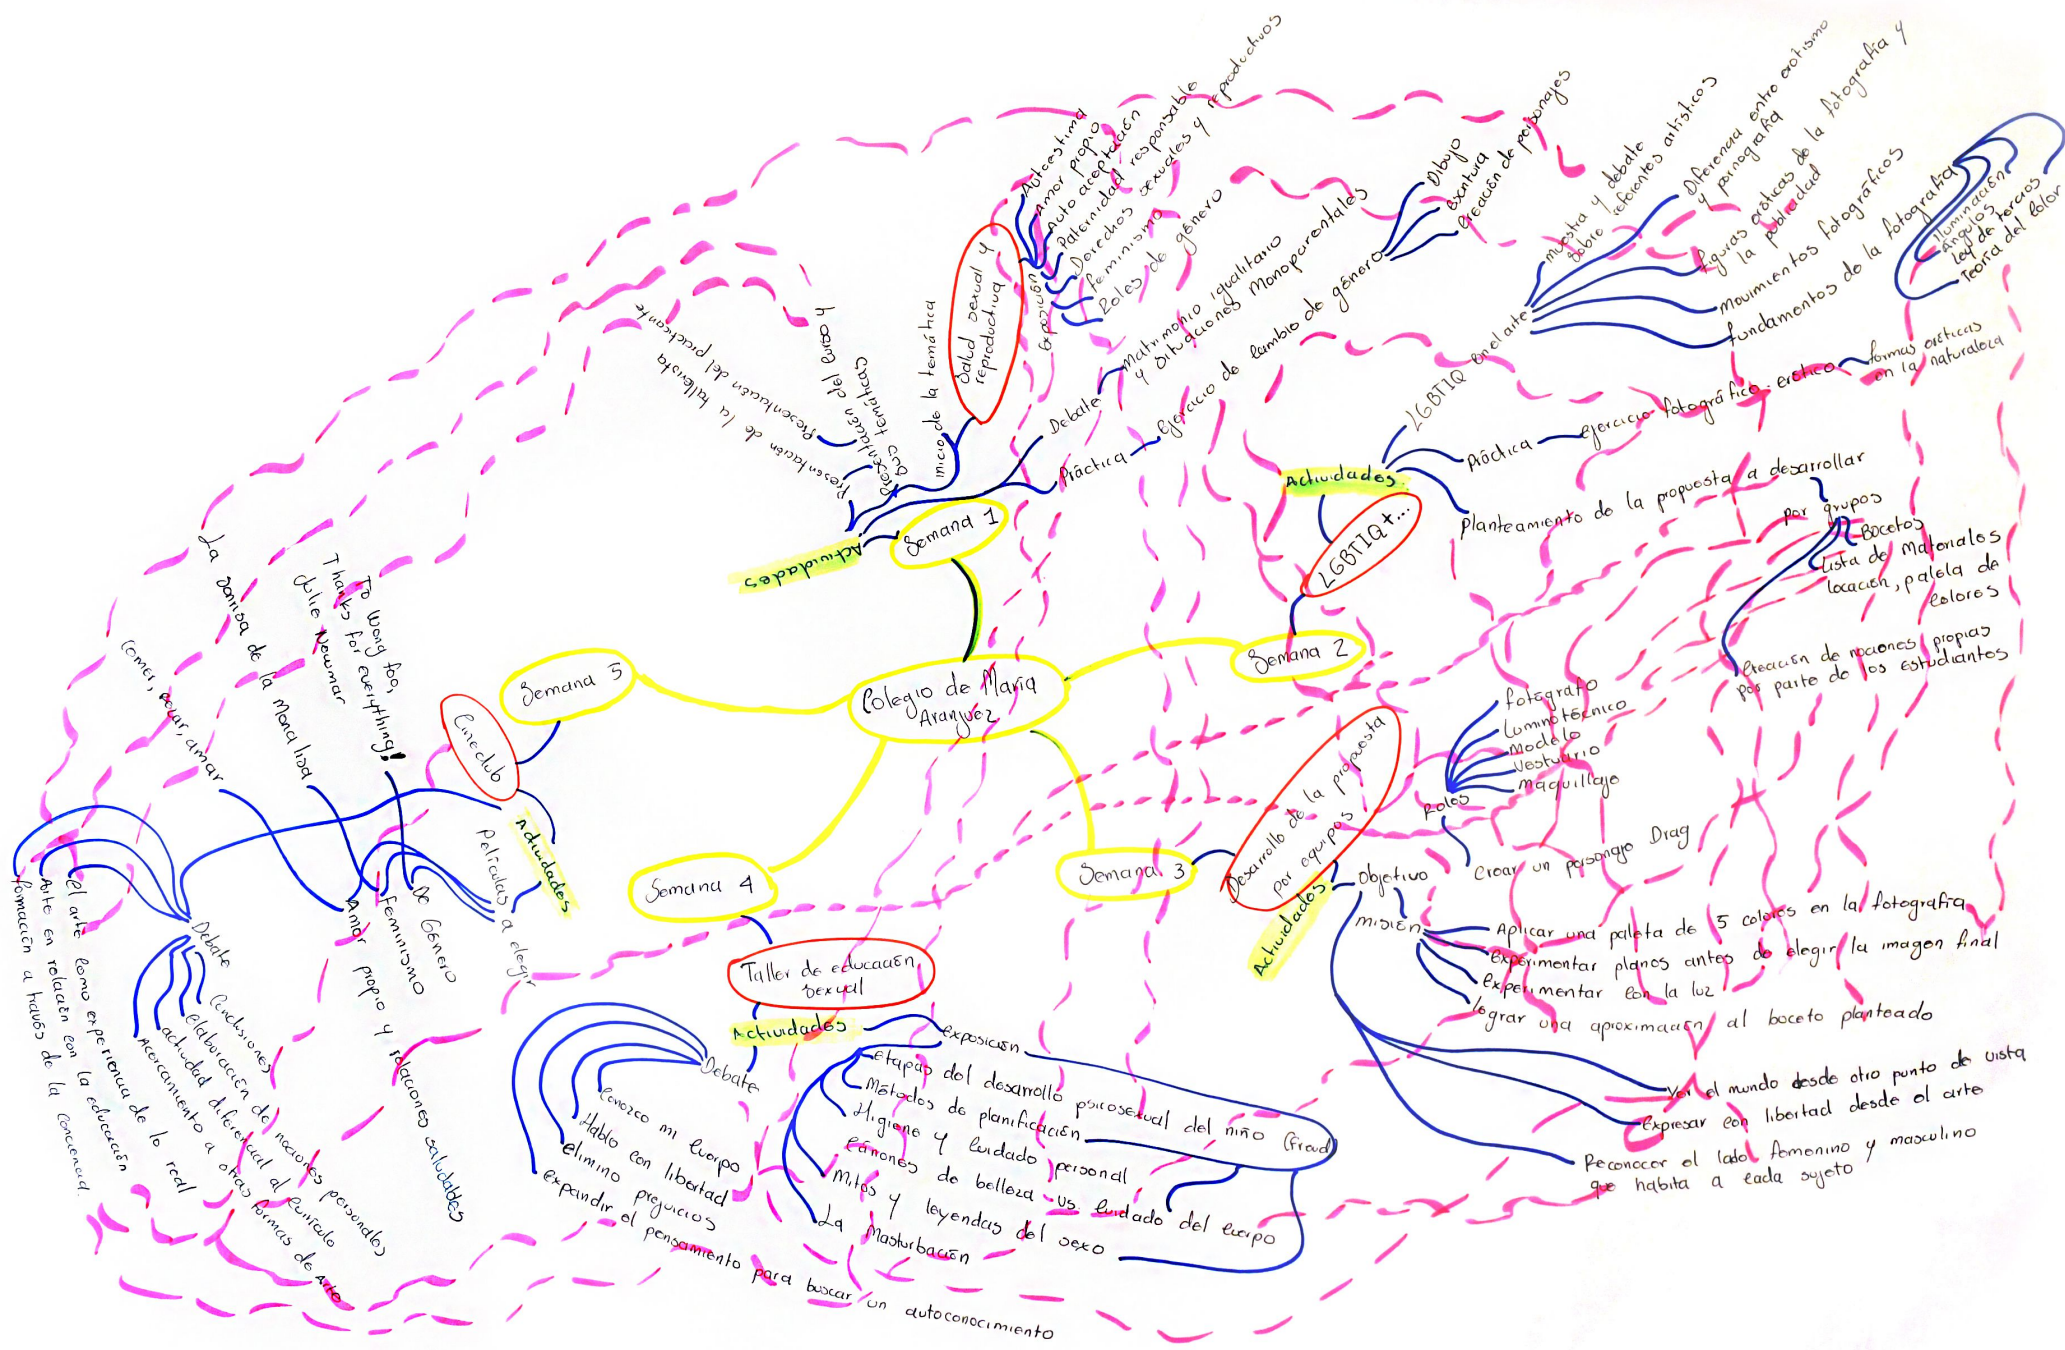 Colegio de María
Aranjuez
Semana 1
Actividades
Presentación de la tallerista
Presentación del practicante
Presentación del curso y
sus temáticas
inicio de la temática
Salud sexual y
reproductiva
Exposición
Autoestima
Amor propio
Auto aceptación
Paternidad responsable
Derechos sexuales y reproductivos
Feminismo
Roles de género
Debate
Matrimonio igualitario
y situaciones monoparentales
Práctica
Ejercicio de cambio de género
Dibujo
Escritura
Creación de personajes
Semana 2
LGBTIQ+...
Actividades
LGBTIQ en el arte
muestra y debate
sobre referentes artísticos
Diferencia entre erotismo
y pornografía
figuras eróticas de la fotografía y
la publicidad
movimientos fotográficos
fundamentos de la fotografía
Iluminación
Ángulos
Ley de tercios
Teoría del color
Práctica
ejercicio fotográfico. erótico
formas eróticas
en la naturaleza
Planteamiento de la propuesta a desarrollar
por grupos
Bocetos
Lista de materiales
locación, paleta de
colores
Creación de nociones propias
por parte de los estudiantes
Semana 3
Desarrollo de la propuesta
por equipos
Actividades
Objetivo
Roles
fotógrafo
Luminotécnico
Modelo
Vestuario
maquillaje
Crear un personaje Drag
misión
Aplicar una paleta de 5 colores en la fotografía
experimentar planos antes de elegir la imagen final
experimentar con la luz
lograr una aproximación al boceto planteado
Ver el mundo desde otro punto de vista
Expresar con libertad desde el arte
Reconocer el lado femenino y masculino
que habita a cada sujeto
Semana 4
Taller de educación
sexual
Actividades
exposición
etapas del desarrollo psicosexual del niño (Freud)
Métodos de planificación
Higiene y cuidado personal
Cánones de belleza vs. cuidado del cuerpo
Mitos y leyendas del sexo
La Masturbación
Debate
Conozco mi cuerpo
Hablo con libertad
elimino prejuicios
expandir el pensamiento para buscar un autoconocimiento
Semana 5
Cineclub
Actividades
Películas a elegir
De Género
feminismo
Amor propio y relaciones saludables
To Wong foo,
Thanks for everything!
Julie Newmar
La sonrisa de la Mona lisa
Comer, rezar, amar
Debate
Conclusiones
elaboración de nociones personales
actividad diferencial al currículo
Acercamiento a otras formas de Arte
el arte como experiencia de lo real
Arte en relación con la educación
formación a través de la conciencia.